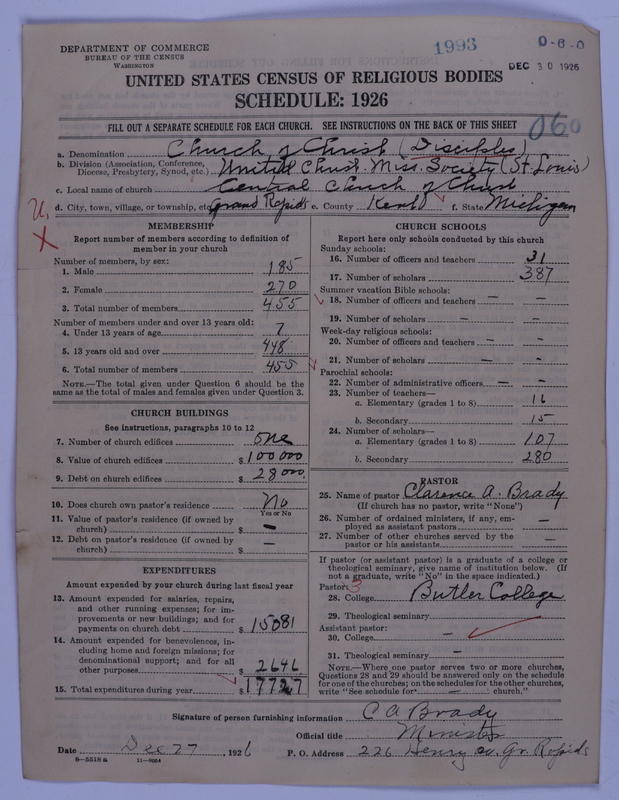 DEPARTMENT OF COMMERCE
BUREAU OF THE CENSUS
WASHINGTON
1993
0-6-0
DEC 30 1926
UNITED STATES CENSUS OF RELIGIOUS BODIES
SCHEDULE: 1926
FILL OUT A SEPARATE SCHEDULE FOR EACH CHURCH. SEE INSTRUCTIONS ON THE BACK OF THIS SHEET
060
a. Denomination Church of Christ (Disciples)
b. Division (Association, Conference, Diocese, Presbytery, Synod, etc.) United Chrisn. Miss. Society (St. Louis)
c. Local name of church Central Church of Christ
d. City, town, village, or township, etc. Grand Rapids e. County Kent f. State Michigan
X
MEMBERSHIP
Report number of members according to definition of member in your church
Number of members, by sex:
1. Male 185
2. Female 270
3. Total number of members 455
Number of members under and over 13 years old:
4. Under 13 years of age 7
5. 13 years old and over 448
6. Total number of members 455
NOTE.—The total given under Question 6 should be the same as the total of males and females given under Question 3.
CHURCH BUILDINGS
See instructions, paragraphs 10 to 12
7. Number of church edifices one
8. Value of church edifices $ 100000
9. Debt on church edifices $ 28000.
10. Does church own pastor's residence No
Yes or No
11. Value of pastor's residence (if owned by church) $ —
12. Debt on pastor's residence (if owned by church) $ —
EXPENDITURES
Amount expended by your church during last fiscal year
13. Amount expended for salaries, repairs, and other running expenses; for improvements or new buildings; and for payments on church debt $ 15081
14. Amount expended for benevolences, including home and foreign missions; for denominational support; and for all other purposes 2646
15. Total expenditures during year $ 17727
CHURCH SCHOOLS
Report here only schools conducted by this church
Sunday schools:
16. Number of officers and teachers 31
17. Number of scholars 387
Summer vacation Bible schools:
18. Number of officers and teachers — —
19. Number of scholars — —
Week-day religious schools:
20. Number of officers and teachers — —
21. Number of scholars — —
Parochial schools:
22. Number of administrative officers — —
23. Number of teachers—
a. Elementary (grades 1 to 8) 16
b. Secondary 15
24. Number of scholars—
a. Elementary (grades 1 to 8) 107
b. Secondary 280
PASTOR
25. Name of pastor Clarence A. Brady
(If church has no pastor, write "None")
26. Number of ordained ministers, if any, employed as assistant pastors —
27. Number of other churches served by the pastor or his assistants —
If pastor (or assistant pastor) is a graduate of a college or theological seminary, give name of institution below. (If not a graduate, write "No" in the space indicated.)
Pastor: 3
28. College Butler College
29. Theological seminary
Assistant pastor:
30. College —
31. Theological seminary —
NOTE.—Where one pastor serves two or more churches, Questions 28 and 29 should be answered only on the schedule for one of the churches; on the schedules for the other churches, write "See schedule for — church."
Signature of person furnishing information C A Brady
Official title Minister
Date Dec 27 1926 P. O. Address 226 Henry av. Gr. Rapids
8—5518a 11—9054